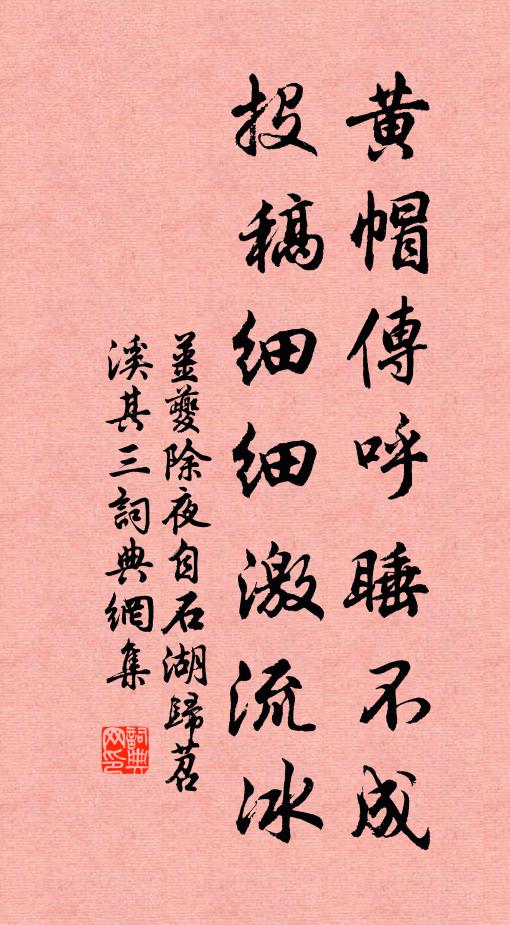 黄帽傳呼睡不成
投稿細細激流冰
薑夔除夜自石湖歸苕
溪其三詞典網集
詞典网印